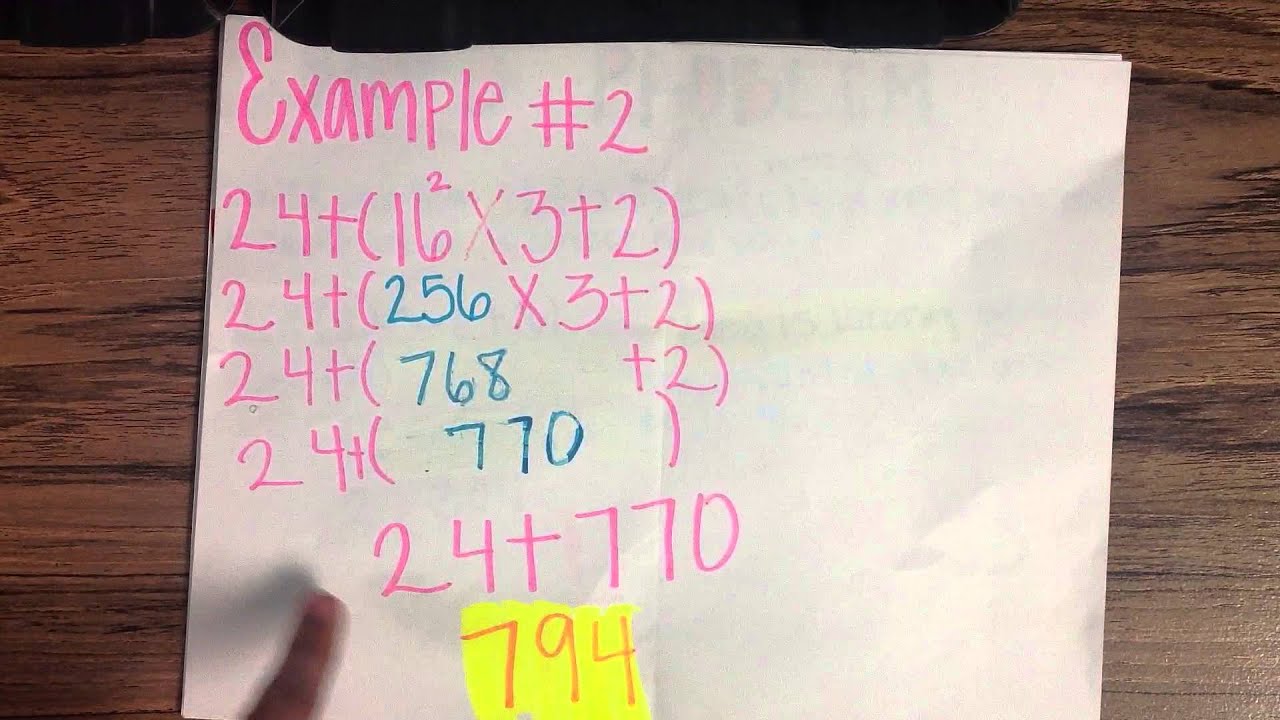 Example #2
24+(16²X3+2)
24+(256X3+2)
24+(768 +2)
24+( 770 )
24+770
794